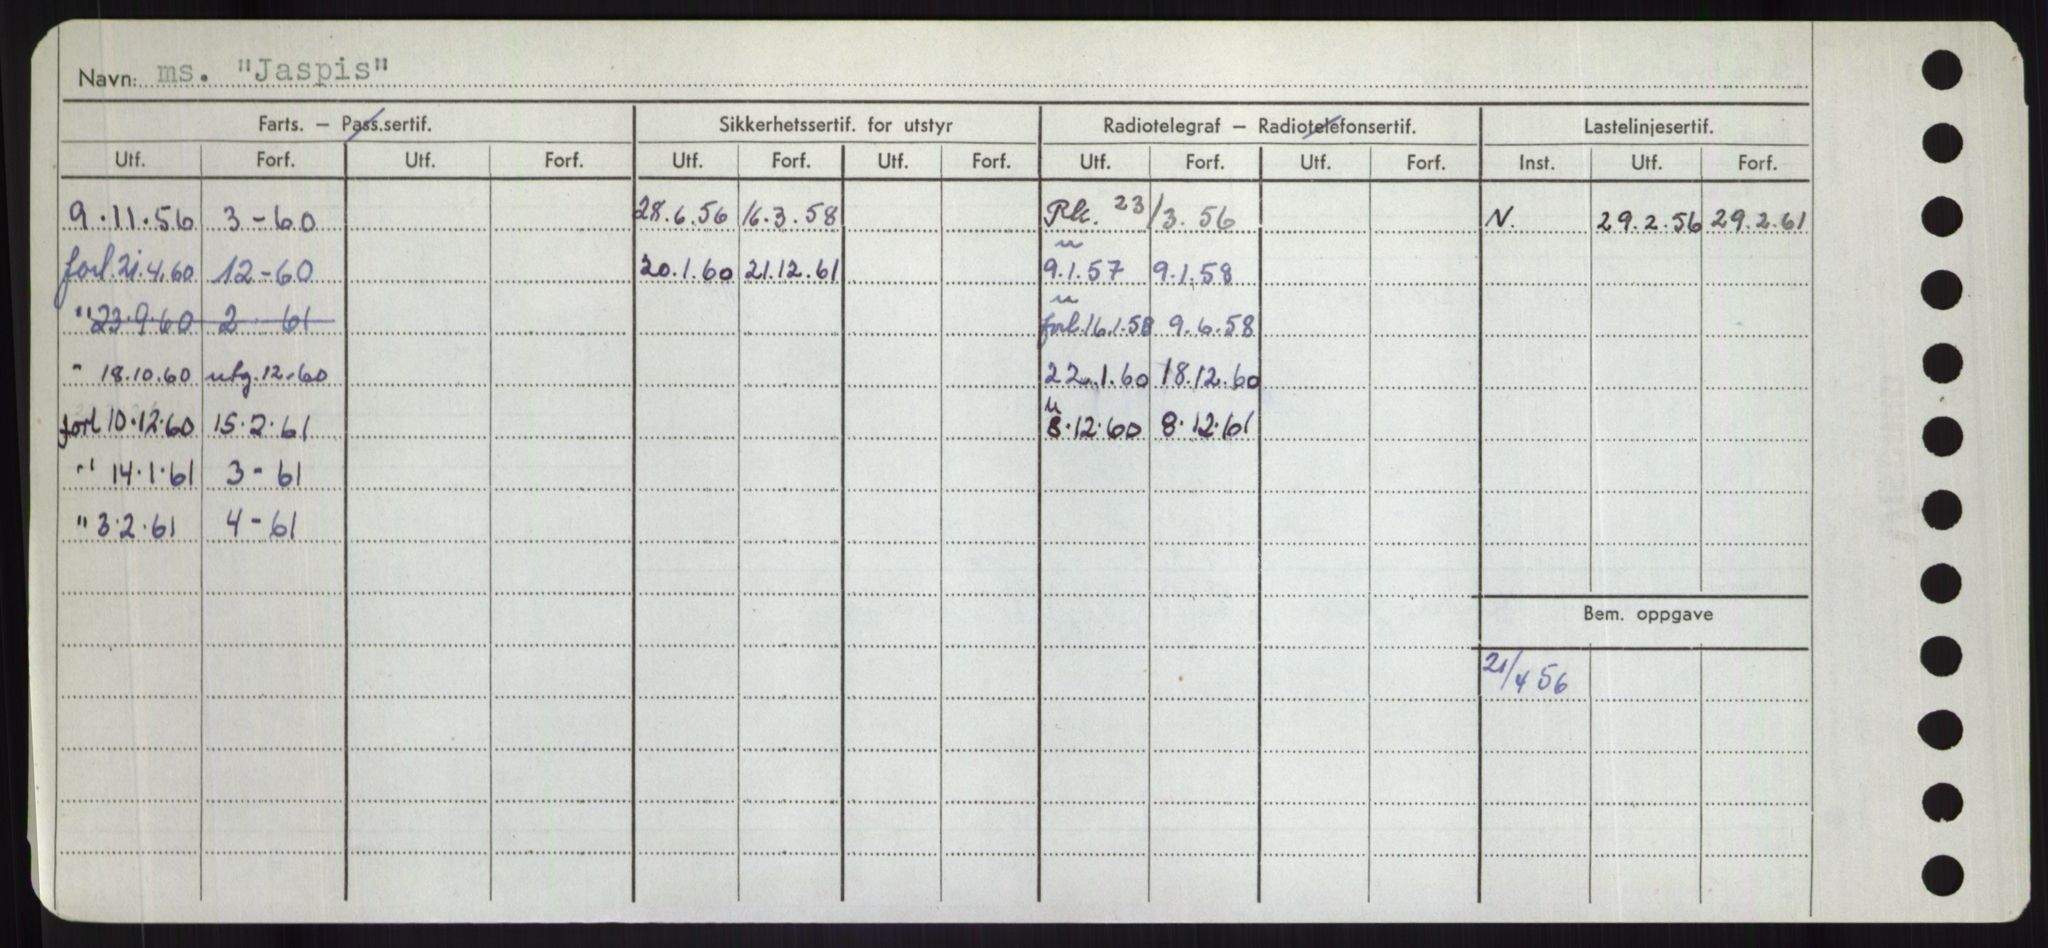 Navn: ms. "Jaspis"
Farts. — Pass.sertif. Sikkerhetssertif. for utstyr Radiotelegraf — Radiotelefonsertif. Lastelinjesertif.
Utf. Forf. Utf. Forf. Utf. Forf. Utf. Forf. Utf. Forf. Utf. Forf. Inst. Utf. Forf.
9.11.56 3-60 28.6.56 16.3.58 Rk. 23/3.56 N. 29.2.56 29.2.61
u
forl.21.4.60 12-60 20.1.60 21.12.61 9.1.57 9.1.58
u
"23.9.60 2 61 forl.16.1.58 9.6.58
" 18.10.60 utg.12-60 22.1.60 18.12.60
u
forl 10.12.60 15.2.61 8.12.60 8.12.61
" 14.1.61 3-61
" 3.2.61 4-61
Bem. oppgave
21/4 56